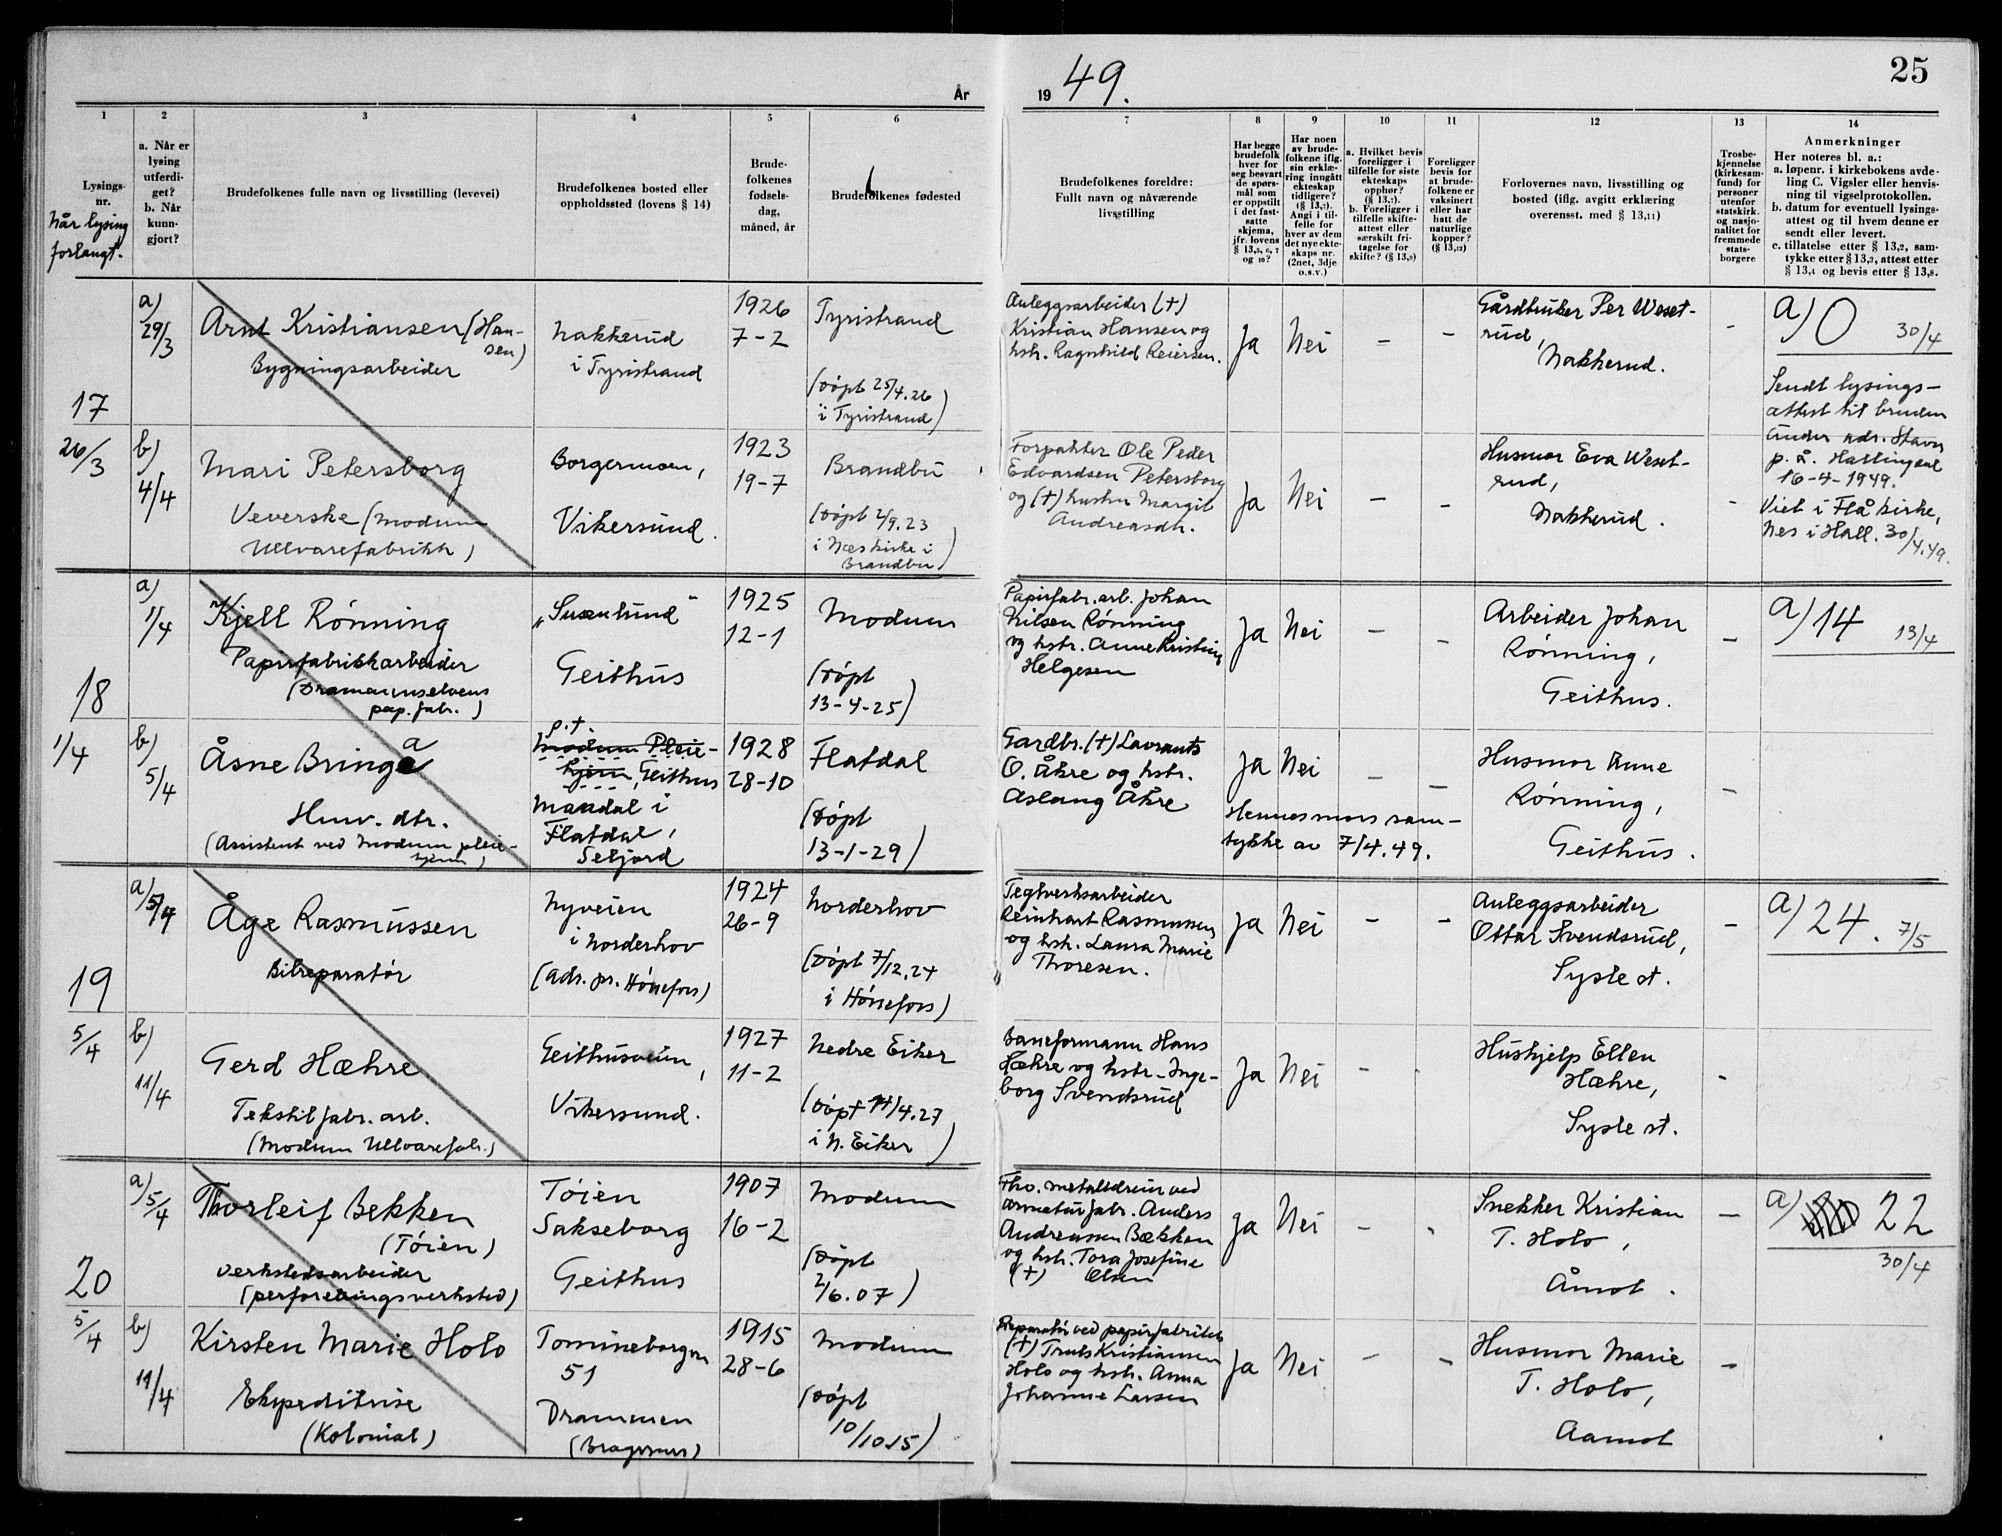 År
19 49.
25
1
Lysings-
nr.
Når lysing
forlangt.
2
a. Når er
lysing
utferdi-
get?
b. Når
kunn-
gjort?
3
Brudefolkenes fulle navn og livsstilling (levevei)
4
Brudefolkenes bosted eller
oppholdssted (lovens § 14)
5
Brude-
folkenes
fødsels-
dag,
måned, år
6
Brudefolkenes fødested
7
Brudefolkenes foreldre:
Fullt navn og nåværende
livsstilling
8
Har begge
brudefolk
hver for
seg besvart
de spørs-
mål som
er oppstilt
i det fast-
satte
skjema,
jfr. lovens
§ 13,5, 6, 7
og 10?
9
Har noen
av brude-
folkene iflg.
sin erklæ-
ring inngått
ekteskap
tidligere?
(§ 13,7).
Angi i til-
felle for
hver av dem
det nye ekte-
skaps nr.
(2net, 3dje
o.s.v.)
10
a. Hvilket bevis
foreligger i
tilfelle for siste
ekteskaps
opphør?
(§ 13,7).
b. Foreligger i
tilfelle skifte-
attest eller
særskilt fri-
tagelse for
skifte? (§ 13,9)
11
Foreligger
bevis for
at brude-
folkene er
vaksinert
eller har
hatt de
naturlige
kopper?
(§ 13,12)
12
Forlovernes navn, livsstilling og
bosted (iflg. avgitt erklæring
overensst. med § 13,11)
13
Trosbe-
kjennelse
(kirkesam-
fund) for
personer
utenfor
statskirk.
og nasjo-
nalitet for
fremmede
stats-
borgere
14
Anmerkninger
Her noteres bl. a.:
a. løpenr. i kirkebokens avde-
ling C. Vigsler eller henvis-
ning til vigselprotokollen.
b. datum for eventuell lysings-
attest og til hvem denne er
sendt eller levert.
c. tillatelse etter § 13,2, sam-
tykke etter § 13,3, attest etter
§ 13,4 og bevis etter § 13,8.
17
26/3
a)
29/3
Arnt Kristiansen (Han-
sen)
Bygningsarbeider
Nakkerud
i Tyristrand
1926
7-2
Tyristrand
(døpt 25/4.26
i Tyristrand)
Anleggsarbeider (+)
Kristian Hansen og
hstr. Ragnhild Reiersen.
Ja
Nei
-
-
Gårdbruker Per Weset-
rud,
Nakkerud.
-
a) 0 30/4
Sendt lysings-
attest til bruden
under adr. Stavn
p.å. Hallingdal
16-4-1949.
Viet i Flå kirke,
Nes i Hall. 30/4.49.
b)
4/4
Mari Petersborg
Veverske (Modum
Ullvarefabrikk)
Borgermoen,
Vikersund.
1923
19-7
Brandbu
(døpt 2/9.23
i Næs kirke i
Brandbu)
Forpakter Ole Peder
Edvardsen Petersborg
og (+) hustru Margit
Andreasdtr.
Ja
Nei
-
-
Husmor Eva Weset-
rud,
Nakkerud.
-
18
1/4
a)
1/4
Kjell Rønning
Papirfabrikkarbeider
(Drammenselvens
pap.fabr.)
"Svenlund"
Geithus
1925
12-1
Modum
(døpt
13-4-25)
Papirfabr.arb. Johan
Nilsen Rønning
og hstr. Anne Kristine
Helgesen
Ja
Nei
-
-
Arbeider Johan
Rønning,
Geithus.
-
a) 14 13/4
b)
5/4
Åsne Bringa
Husv. dtr.
(Assistent ved Modum pleie-
hjem)
p.t.
Modum Pleie-
hjem, Geithus
Mandal i
Flatdal,
Seljord
1928
28-10
Flatdal
(døpt
13-1-29)
Gardbr. (+) Lavrants
O. Åkre og hstr.
Aslaug Åkre
Ja
Nei
-
-
Hennes mors sam-
tykke av 7/4.49.
Husmor Anne
Rønning,
Geithus.
-
19
5/4
a) 5/4
Åge Rasmussen
Bilreparatør
Nyveien
i Norderhov
(adr. pr. Hønefoss)
1924
26-9
Norderhov
(døpt 7/12.24
i Hønefoss)
Teglverksarbeider
Reinhart Rasmussen
og hstr. Laura Marie
Thoresen.
Ja
Nei
-
-
Anleggsarbeider
Ottar Svendsrud,
Sysle st.
-
a) 24. 7/5
b)
11/4
Gerd Hæhre
Tekstilfabr. arb.
(Modum Ullvarefabr.)
Geithusveien,
Vikersund.
1927
11-2
Nedre Eiker
(døpt 17/4.27
i N. Eiker)
Baneformann Hans
Hæhre og hstr. Inge-
borg Svendsrud
Ja
Nei
-
-
Hushjelp Ellen
Hæhre,
Sysle st.
-
20
5/4
a) 5/4
Thorleif Bekken
(Tøien)
Verkstedsarbeider
(perforeringsverksted)
Tøien
Sakseborg
Geithus
1907
16-2
Modum
(døpt
2/6.07)
Fhv. metalldreier ved
armaturfabr. Anders
Andreassen Bækken
og hstr. Tora Josefine
(+) Olsen
Ja
Nei
-
-
Snekker Kristian
T. Holo,
Åmot.
-
a) 22
30/4
b)
11/4
Kirsten Marie Holo
Ekspeditrise
(Kolonial)
Tomineborgen
51
Drammen
(Bragernes)
1915
28-6
Modum
(døpt
10/10.15)
Reparatør ved papirfabrikk
(+) Truls Kristiansen
Holo og hstr. Anna
Johanne Larsen
Ja
Nei
-
-
Husmor Marie
T. Holo,
Aamot
-